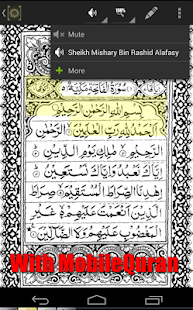 100%
Mute
Sheikh Mishary Bin Rashid Alafasy
More
سُورَةُ الفَاتِحَةِ
بِسْمِ اللَّهِ الرَّحْمَٰنِ الرَّحِيمِ
الْحَمْدُ لِلَّهِ رَبِّ الْعَالَمِينَ الرَّحْمَٰنِ
الرَّحِيمِ مَالِكِ يَوْمِ الدِّينِ
إِيَّاكَ نَعْبُدُ وَإِيَّاكَ نَسْتَعِينُ
اهْدِنَا الصِّرَاطَ الْمُسْتَقِيمَ صِرَاطَ
الَّذِينَ أَنْعَمْتَ عَلَيْهِمْ غَيْرِ
الْمَغْضُوبِ عَلَيْهِمْ وَلَا الضَّالِّينَ
With MobileQuran